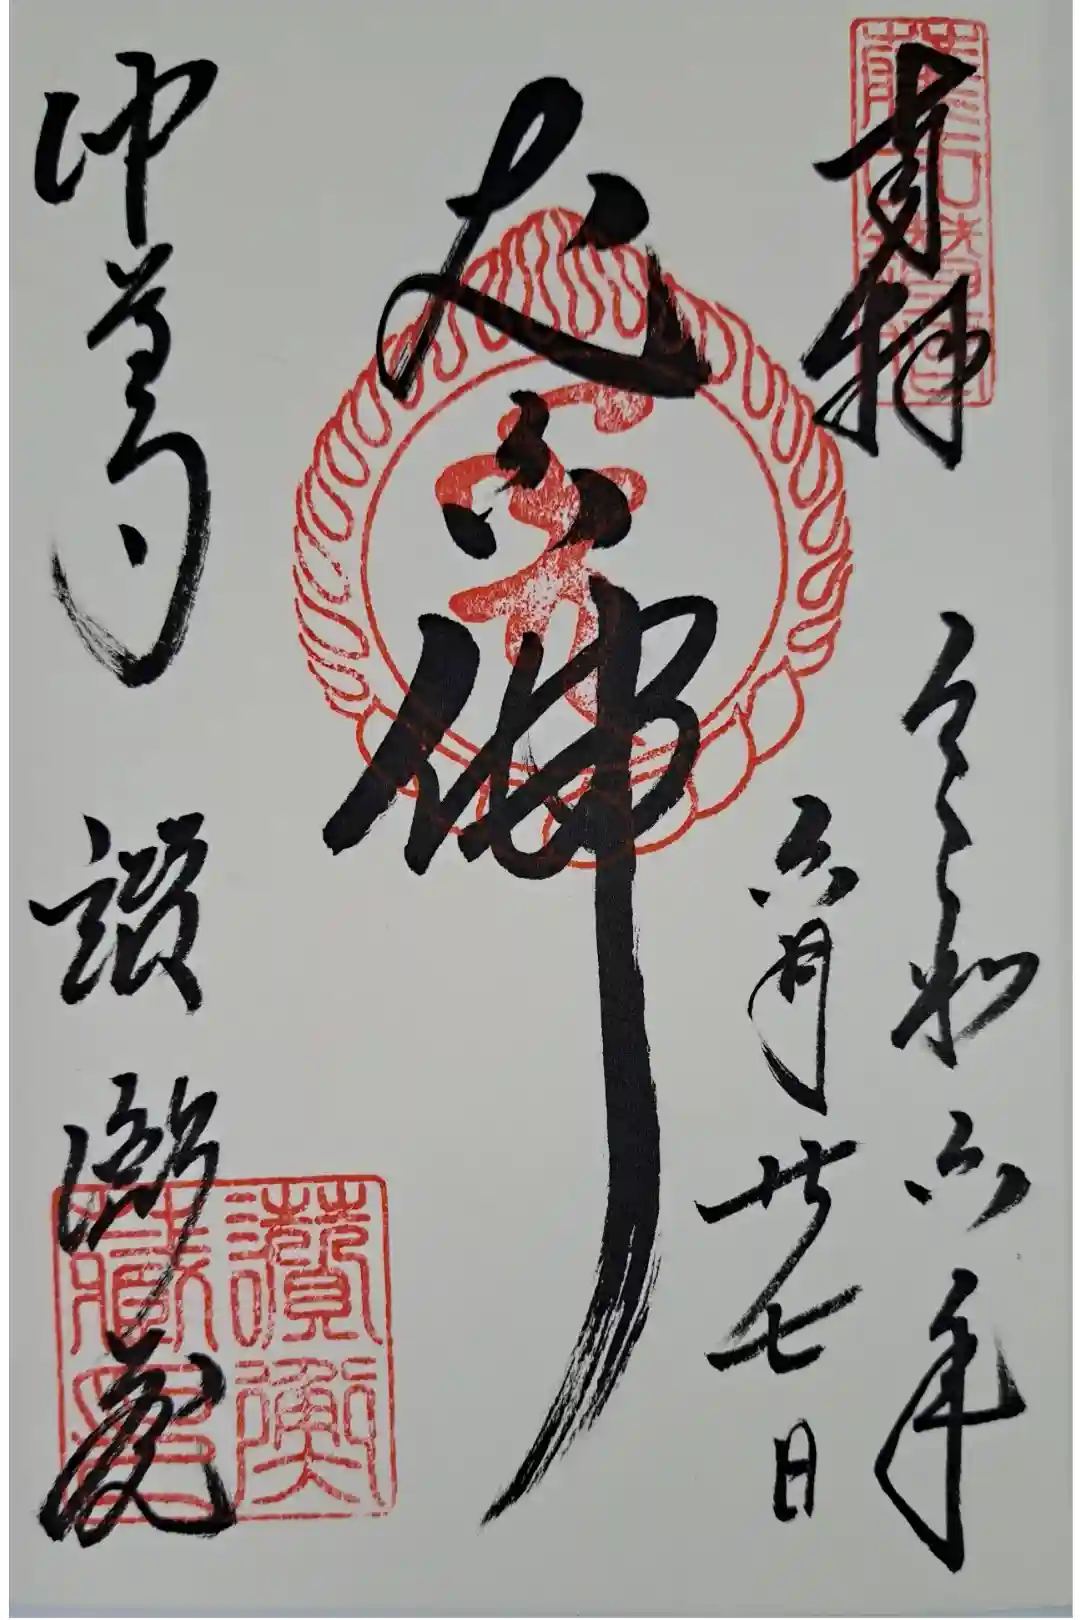 奉拝
令和六年
六月廿七日
丈六佛
中尊寺 讃衡蔵
讃衡
蔵印